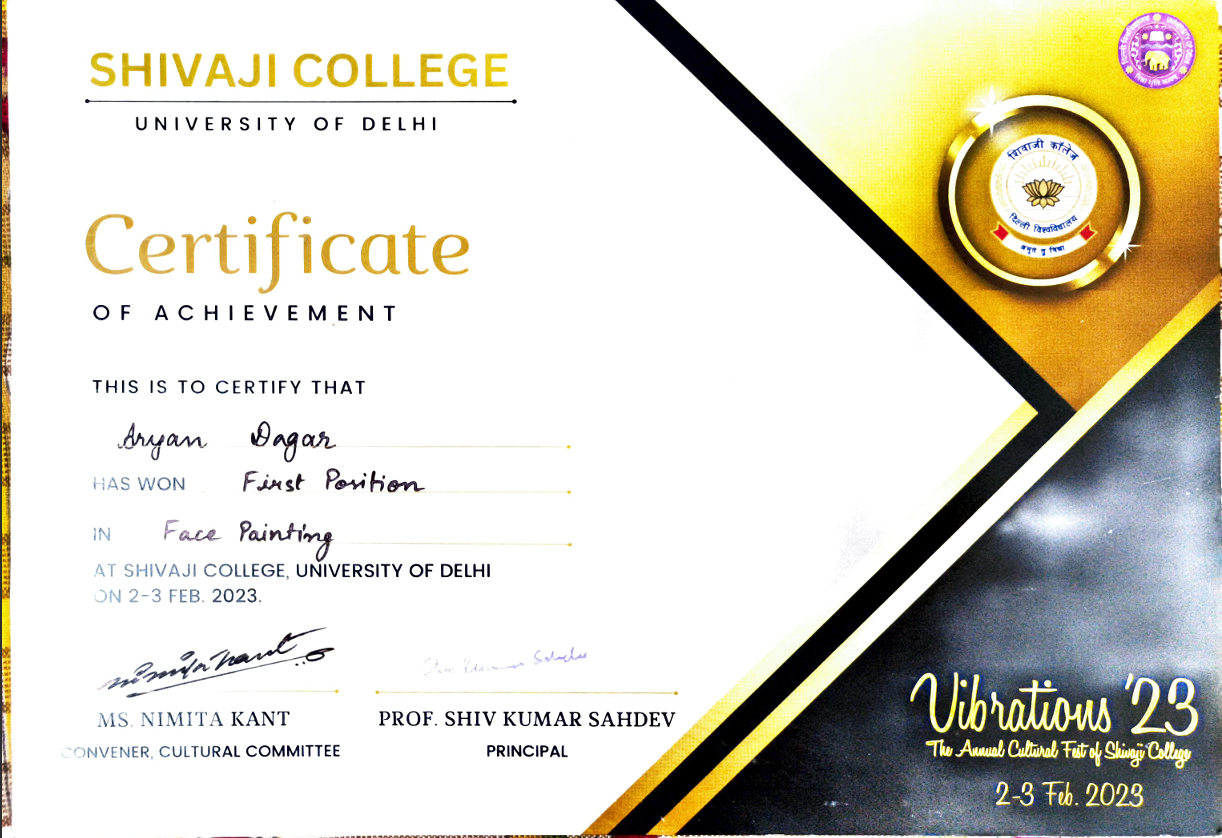 SHIVAJI COLLEGE
UNIVERSITY OF DELHI
Certificate
OF ACHIEVEMENT
THIS IS TO CERTIFY THAT
Aryan Dagar
HAS WON First Position
IN Face Painting
AT SHIVAJI COLLEGE, UNIVERSITY OF DELHI
ON 2-3 FEB. 2023.
Nimita Kant
Shiv Kumar Sahdev
MS. NIMITA KANT
CONVENER, CULTURAL COMMITTEE
PROF. SHIV KUMAR SAHDEV
PRINCIPAL
शिवाजी कॉलेज
दिल्ली विश्वविद्यालय
Vibrations '23
The Annual Cultural Fest of Shivaji College
2-3 Feb. 2023